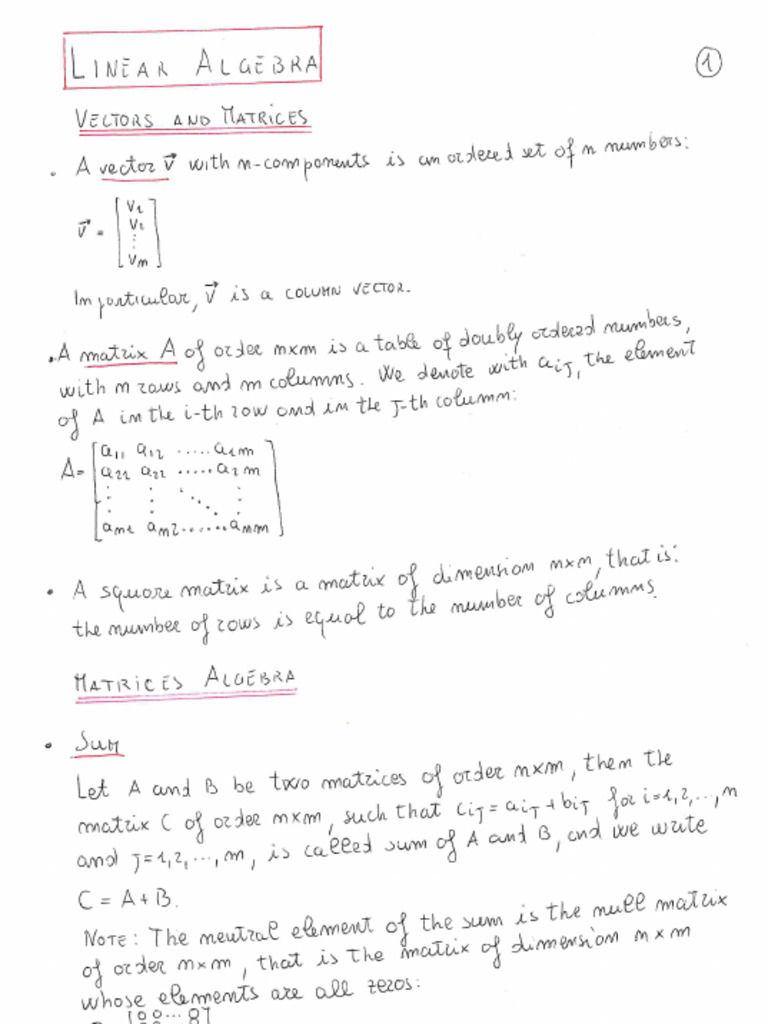 LINEAR ALGEBRA
1
VECTORS AND MATRICES
• A vector v⃗ with n-components is an ordered set of n numbers:
v⃗ = [v1 v2 ⋮ vn]
In particular, v⃗ is a COLUMN VECTOR.
• A matrix A of order n×m is a table of doubly ordered numbers,
with n rows and m columns. We denote with aij, the element
of A in the i-th row and in the j-th column:
A = [a11 a12 ..... a1m
a21 a22 ..... a2m
⋮ ⋮ ⋱ ⋮
an1 an2 ....... anm]
• A square matrix is a matrix of dimension n×n, that is:
the number of rows is equal to the number of columns.
MATRICES ALGEBRA
• SUM
Let A and B be two matrices of order n×m, then the
matrix C of order n×m, such that cij = aij + bij for i=1,2,...,n
and j=1,2,...,m, is called sum of A and B, and we write
C = A + B.
NOTE: The neutral element of the sum is the null matrix
of order n×m, that is the matrix of dimension n×m
whose elements are all zeros: